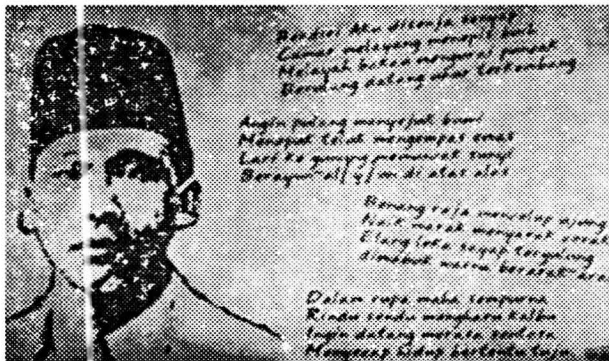 Berdiri Aku disenja senyap
Camar melayang menepis buih
Melayah bakau mengurai puncak
datang ubur terkembang
Angin pulang menyejuk bumi
Menepuk teluk mengempas emas
Lari ke gunung memuncak sunyi
di atas alas
Benang raja mencelup ujung
Naik marak menyerak corak
Elang leka sayap tergulung
dimabuk warna berarak
Dalam rupa maha sempurna
Rindu sendu mengharu kalbu
Ingin datang merasa sentosa
Mengecap hidup bertentu